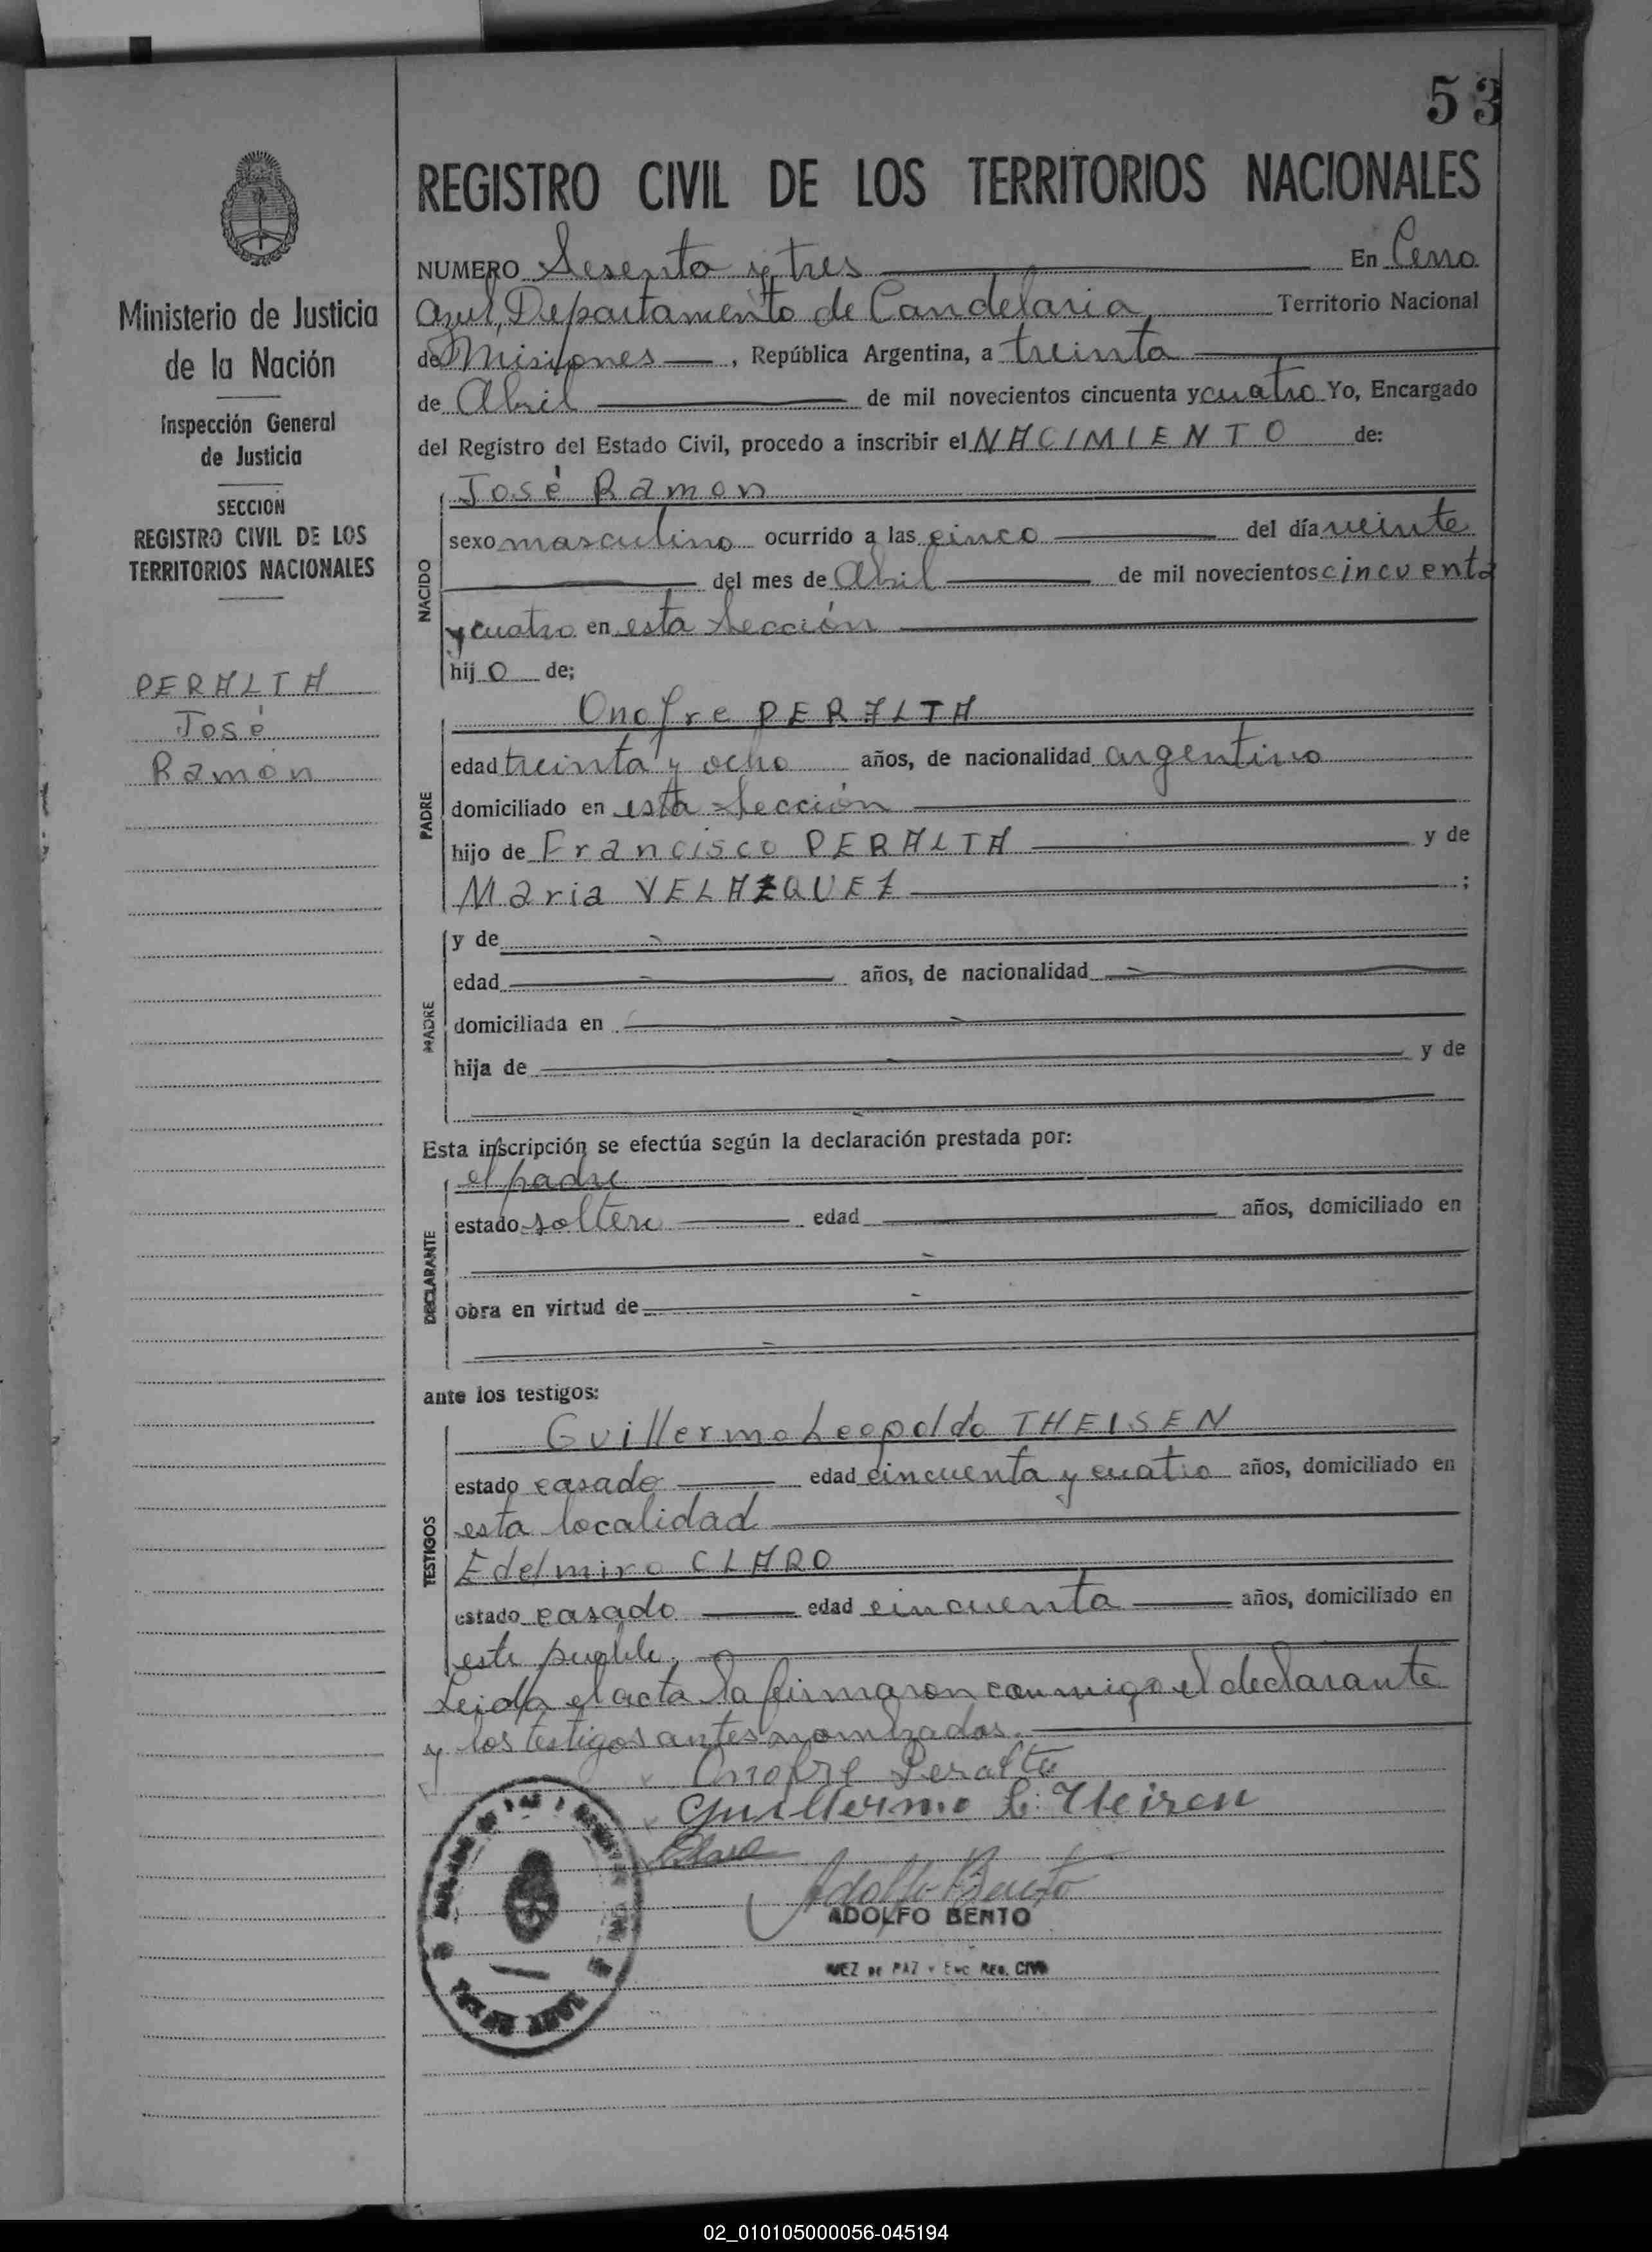 53
REGISTRO CIVIL DE LOS TERRITORIOS NACIONALES
Ministerio de Justicia
de la Nación
Inspección General
de Justicia
SECCION
REGISTRO CIVIL DE LOS
TERRITORIOS NACIONALES
PERALTA
José
Ramón
NUMERO Sesenta y tres En Cerro
Azul, Departamento de Candelaria, Territorio Nacional
de Misiones, República Argentina, a treinta
de Abril de mil novecientos cincuenta y cuatro Yo, Encargado
del Registro del Estado Civil, procedo a inscribir el NACIMIENTO de:
NACIDO
José Ramon
sexo masculino ocurrido a las cinco del día veinte
del mes de Abril de mil novecientos cincuenta
y cuatro en esta Sección
hijo de;
PADRE
Onofre PERALTA
edad treinta y ocho años, de nacionalidad argentino
domiciliado en esta Sección
hijo de Francisco PERALTA y de
Maria VELAZQUEZ ;
MADRE
y de
edad años, de nacionalidad
domiciliada en
hija de y de
Esta inscripción se efectúa según la declaración prestada por:
DECLARANTE
el padre
estado soltero edad años, domiciliado en
obra en virtud de
ante los testigos:
TESTIGOS
Guillermo Leopoldo THEISEN
estado casado edad cincuenta y cuatro años, domiciliado en
esta localidad
Edelmiro CLARO
estado casado edad cincuenta años, domiciliado en
este pueblo.
Leida el acta la firmaron conmigo el declarante
y los testigos antes nombrados.
Onofre Peralta
Guillermo L. Theisen
Claro
Adolfo Bento
ADOLFO BENTO
JUEZ DE PAZ Y ENC. REG. CIVIL
02_010105000056-045194